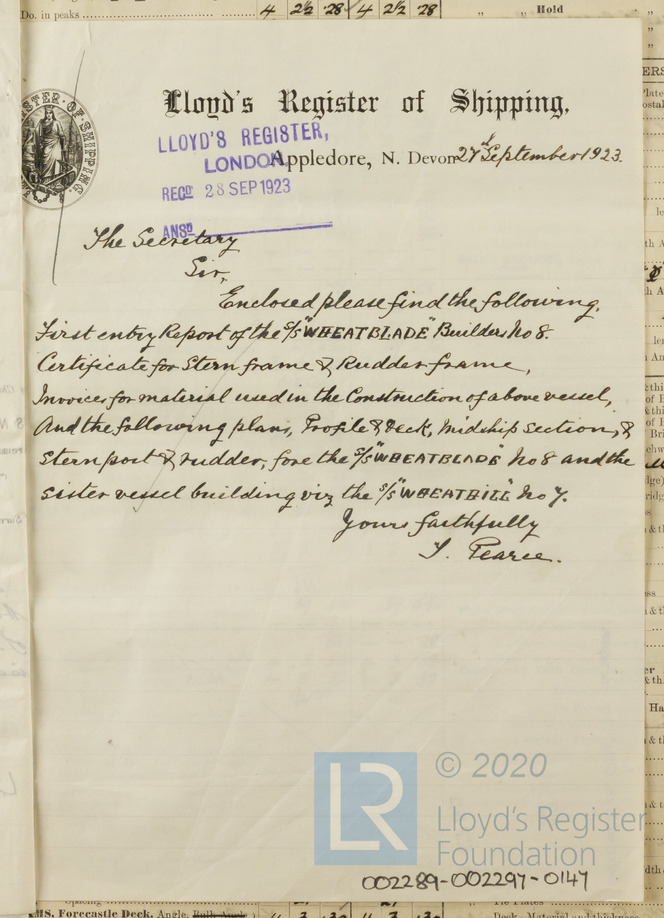 Do. in peaks 4 2½ ·28 4 2½ ·28 " Hold "
REGISTER·OF·SHIPPING
Lloyd's Register of Shipping,
LLOYD'S REGISTER,
LONDON
Appledore, N. Devon 27th September 1923.
RECD 28 SEP 1923
ANSD
The Secretary
Sir,
Enclosed please find the following,
First entry Report of the S/S "WHEATBLADE" Builders No 8.
Certificate for Stern frame & Rudder frame,
Invoices for material used in the Construction of above vessel,
And the following plans, Profile & Deck, Midship Section, &
Sternpost & rudder, fore the S/S "WHEATBLADE" No 8 and the
sister vessel building viz the S/S "WHEATBILL" No 7.
Yours faithfully
J. Pearce.
LR
© 2020
Lloyd's Register
Foundation
002289-002297-0147
MS. Forecastle Deck, Angle,